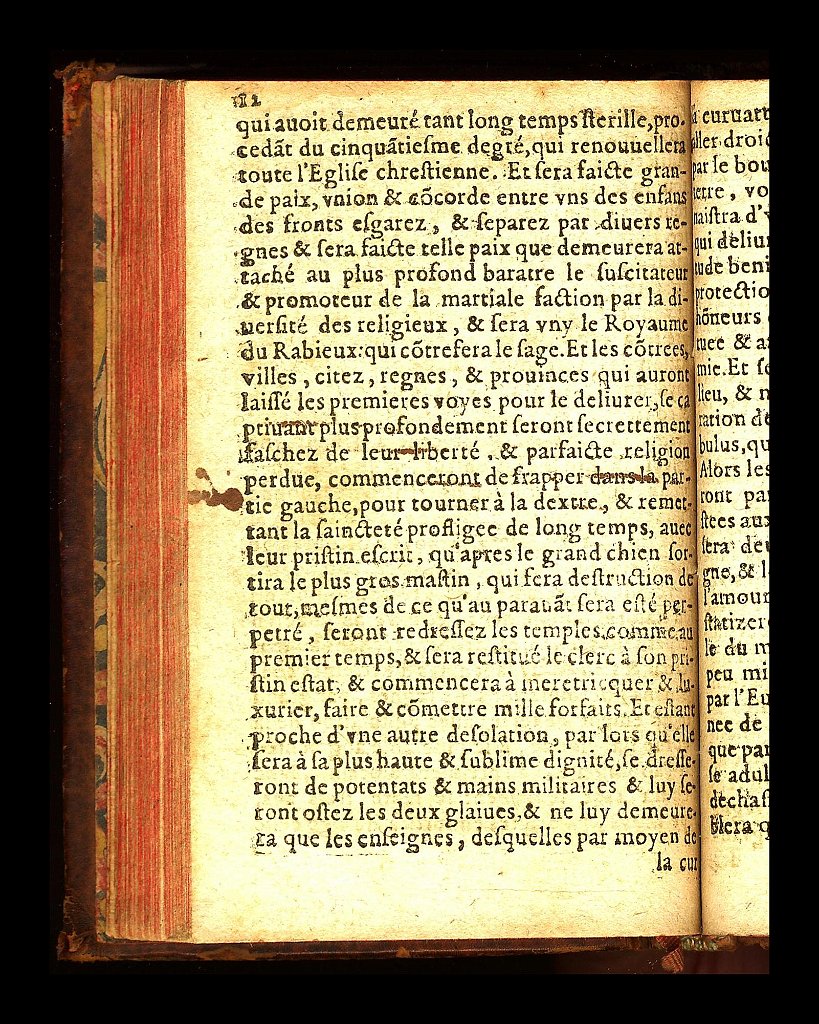 12
qui auoit demeuré tant long temps ſterille, pro-
cedãt du cinquãtieſme degré, qui renouuellera
toute l'Egliſe chreſtienne. Et ſera faicte gran-
de paix, vnion & cõcorde entre vns des enfans
des fronts eſgarez, & ſeparez par diuers re-
gnes & ſera faicte telle paix que demeurera at-
taché au plus profond baratre le ſuſcitateur
& promoteur de la martiale faction par la di-
uerſité des religieux, & ſera vny le Royaume
du Rabieux: qui cõtrefera le ſage. Et les cõtrees,
villes, citez, regnes, & prouinces qui auront
laiſſé les premieres voyes pour le deliurer, ſe ca
ptiuant plus profondement ſeront ſecrettement
faſchez de leur liberté, & parfaicte religion
perdue, commenceront de frapper dans la par-
tie gauche, pour tourner à la dextre, & remet-
tant la ſaincteté profligee de long temps, auec
leur priſtin eſcrit, qu'apres le grand chien ſor-
tira le plus gros maſtin, qui fera deſtruction de
tout, meſmes de ce qu'au parauãt ſera eſté per-
petré, ſeront redreſſez les temples comme au
premier temps, & ſera reſtitué le clerc à ſon pri-
ſtin eſtat, & commencera à meretricquer & lu-
xurier, faire & cõmettre mille forfaits. Et eſtant
proche d'vne autre deſolation, par lors qu'elle
ſera à ſa plus haute & ſublime dignité, ſe dreſſe-
ront de potentats & mains militaires & luy ſe-
ront oſtez les deux glaiues, & ne luy demeure-
ra que les enſeignes, deſquelles par moyen de
la cur
curuat
ller droic
par le bou
erre, vo
naiſtra d'v
qui deliur
ude beni
protectio
hõneurs
tuee & a
mie. Et ſe
lieu, & n
ration de
bulus, qu
Alors les
ront par
ſtees aux
ſera de
gne, & l
l'amour
ſtatizer
le du m
peu mi
par l'Eu
nee de
que par
ſe adul
dechaſ
blera q